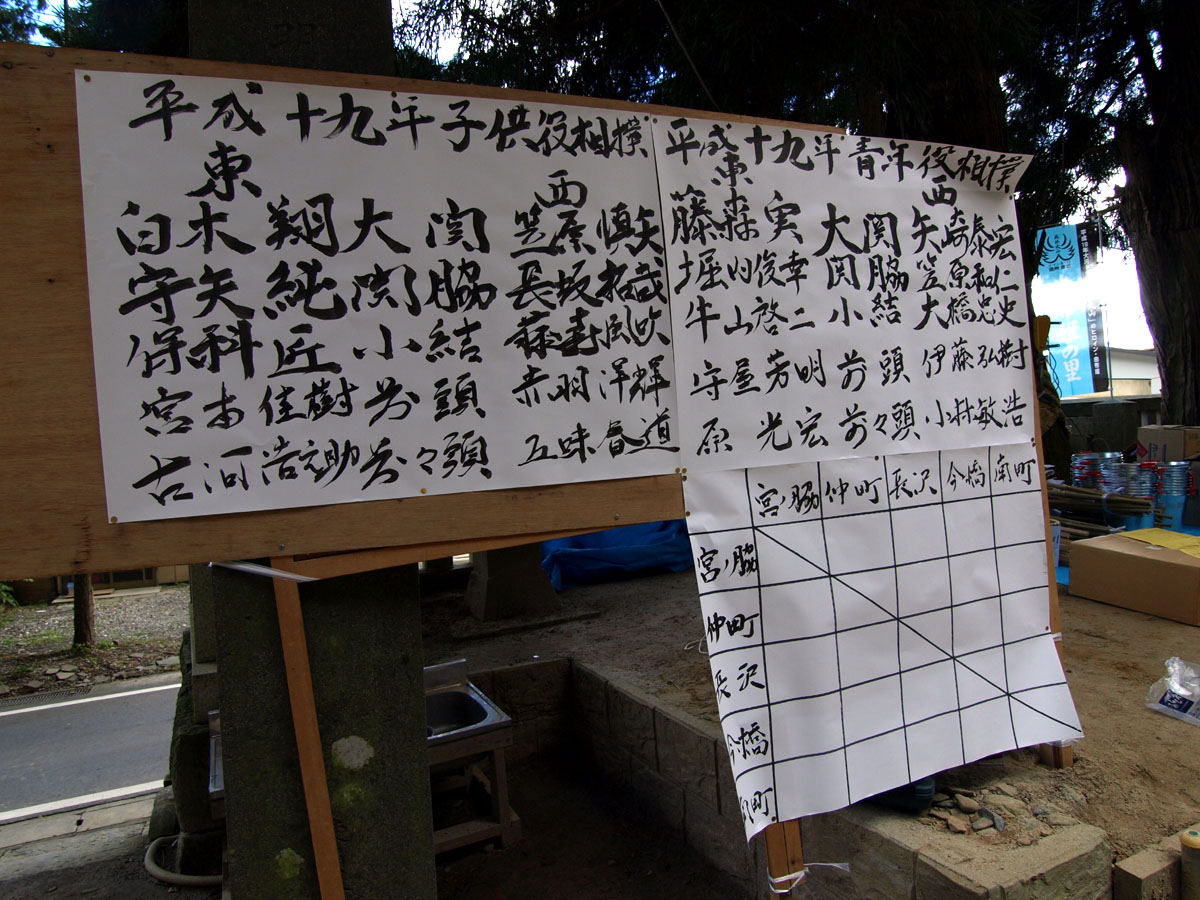 平成十九年子供役相撲
東 西
白木翔大関笠原慎矢
守矢純関脇長坂拓哉
保科匠小結藤寿風吹
宮本佳樹前頭赤羽洋輝
古河浩之助前々頭五味春道
平成十九年青年役相撲
東 西
藤森実大関矢崎泰宏
堀内俊幸関脇笠原和仁
牛山啓二小結大橋忠史
守屋芳明前頭伊藤弘樹
原光宏前々頭小林敏浩
宮ノ脇 仲町 長沢 今橋 南町
宮ノ脇
仲町
長沢
今橋
南町
の里